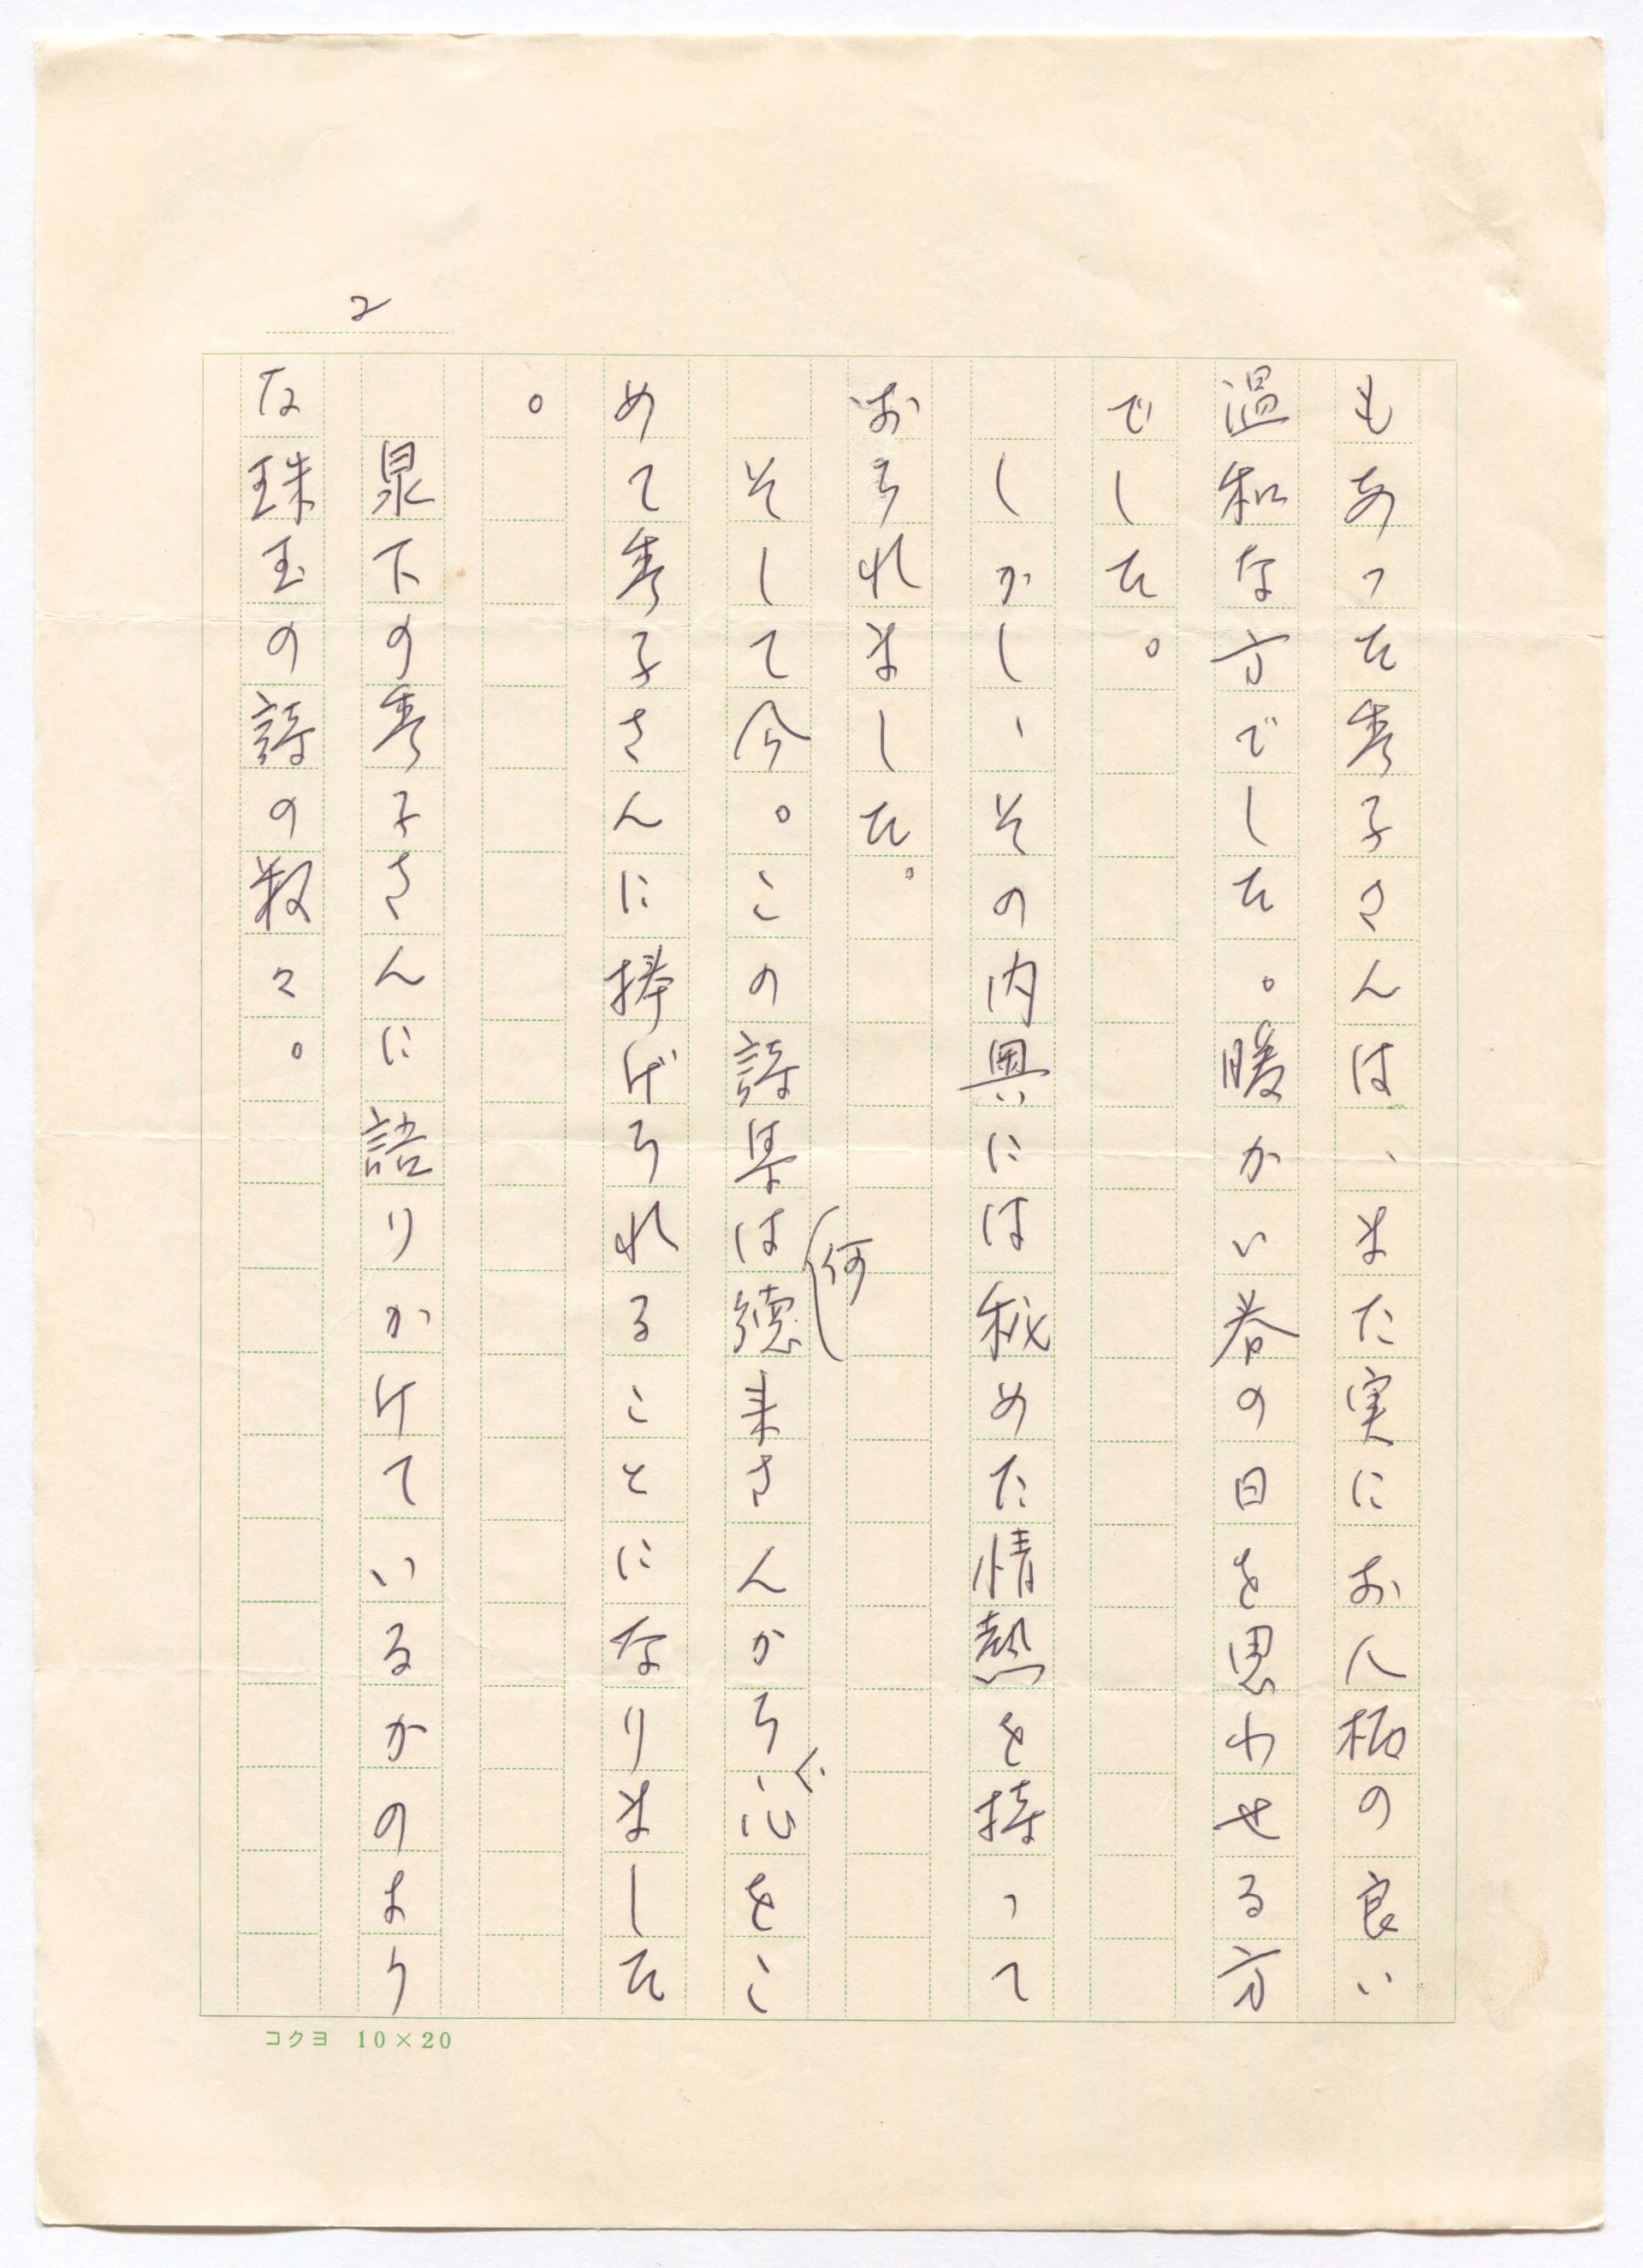 2
もあった秀子さんは、また実にお人柄の良い
温和な方でした。暖かい春の日を思わせる方
でした。
しかし、その内奥には秘めた情熱を持って
おられました。
そして今。この詩集は徳来さんから、心をこ
(何
めて秀子さんに捧げられることになりました
。
泉下の秀子さんに語りかけているかのよう
な珠玉の詩の数々。
コクヨ 10×20